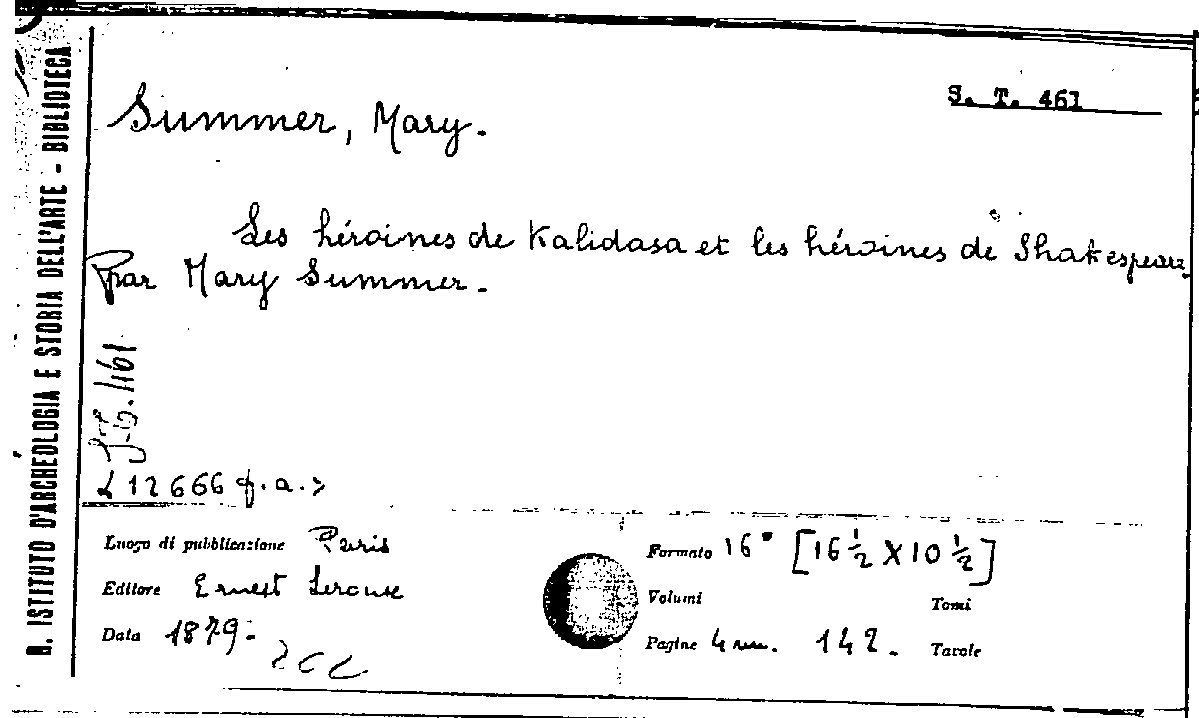 R. ISTITUTO D'ARCHEOLOGIA E STORIA DELL'ARTE - BIBLIOTECA
S. T. 461
Summer, Mary.
Les héroines de Kalidasa et les héroines de Shakespeare
par Mary Summer.
<12666 f.a.>
Luogo di pubblicazione Paris
Editore Ernest Leroux
Data 1879.
Formato 16° [16 ½ X 10 ½]
Volumi Tomi
Pagine 4 nn. 142. Tavole